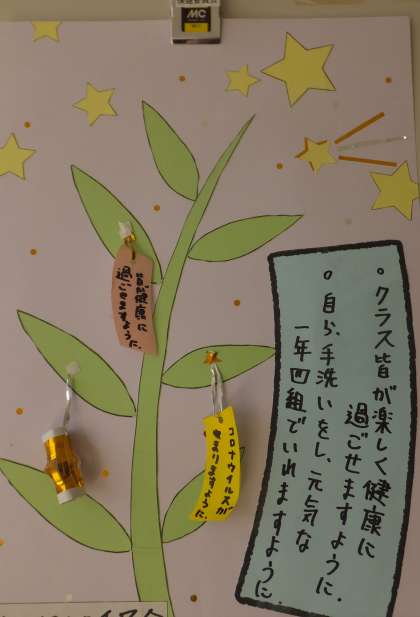 MC
。クラス皆が楽しく健康に
過ごせますように。
。自ら手洗いをし、元気な
一年四組でいれますように。
皆が健康に
過ごせますように。
コロナウイルスが
まりますように。